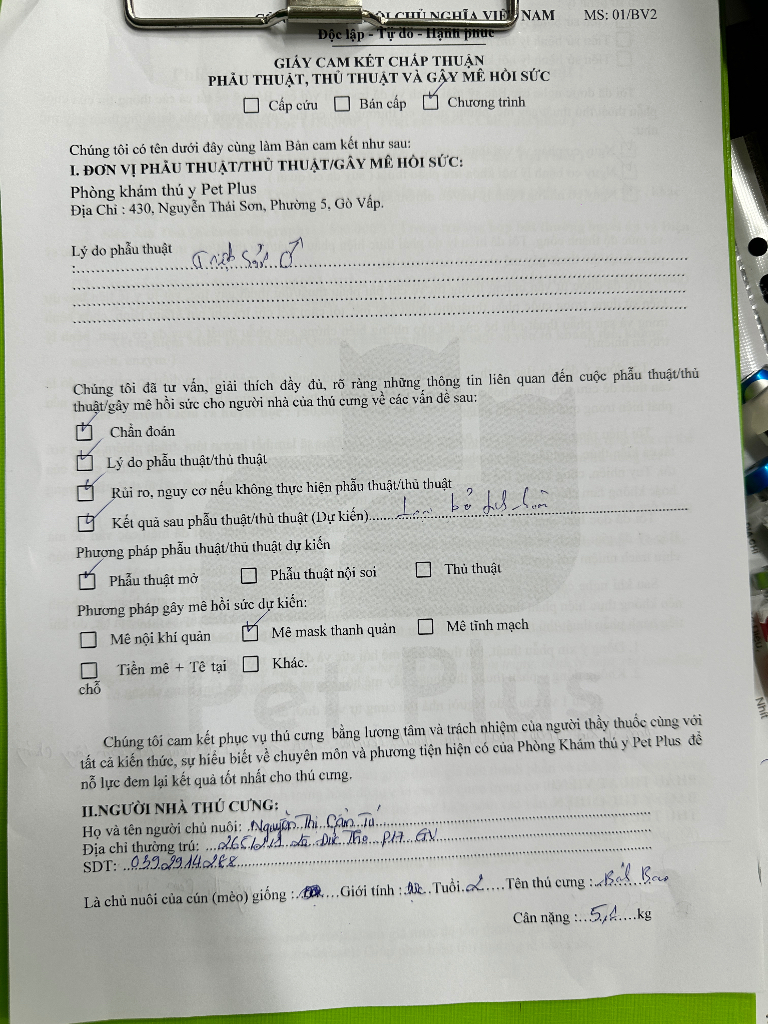 CHỦ NGHĨA VIỆT NAM MS: 01/BV2
Độc lập - Tự do - Hạnh phúc
GIẤY CAM KẾT CHẤP THUẬN
PHẪU THUẬT, THỦ THUẬT VÀ GÂY MÊ HỒI SỨC
Cấp cứu Bán cấp Chương trình
Chúng tôi có tên dưới đây cùng làm Bản cam kết như sau:
I. ĐƠN VỊ PHẪU THUẬT/THỦ THUẬT/GÂY MÊ HỒI SỨC:
Phòng khám thú y Pet Plus
Địa Chỉ : 430, Nguyễn Thái Sơn, Phường 5, Gò Vấp.
Lý do phẫu thuật
: Triệt sản ♂
Chúng tôi đã tư vấn, giải thích đầy đủ, rõ ràng những thông tin liên quan đến cuộc phẫu thuật/thủ
thuật/gây mê hồi sức cho người nhà của thú cưng về các vấn đề sau:
Chẩn đoán
Lý do phẫu thuật/thủ thuật
Rủi ro, nguy cơ nếu không thực hiện phẫu thuật/thủ thuật
Kết quả sau phẫu thuật/thủ thuật (Dự kiến)... bỏ
Phương pháp phẫu thuật/thủ thuật dự kiến
Phẫu thuật mở Phẫu thuật nội soi Thủ thuật
Phương pháp gây mê hồi sức dự kiến:
Mê nội khí quản Mê mask thanh quản Mê tĩnh mạch
Tiền mê + Tê tại Khác.
chỗ
Pet Plus
Chúng tôi cam kết phục vụ thú cưng bằng lương tâm và trách nhiệm của người thầy thuốc cùng với
tất cả kiến thức, sự hiểu biết về chuyên môn và phương tiện hiện có của Phòng Khám thú y Pet Plus để
nỗ lực đem lại kết quả tốt nhất cho thú cưng.
II.NGƯỜI NHÀ THÚ CƯNG:
Họ và tên người chủ nuôi: Nguyễn Thị Cẩm Tú
Địa chỉ thường trú: Đức Thọ P17 GV
SDT: 039.2914288
Là chủ nuôi của cún (mèo) giống :....Giới tính :....Tuổi 2....Tên thú cưng :
Cân nặng :..5,1....kg